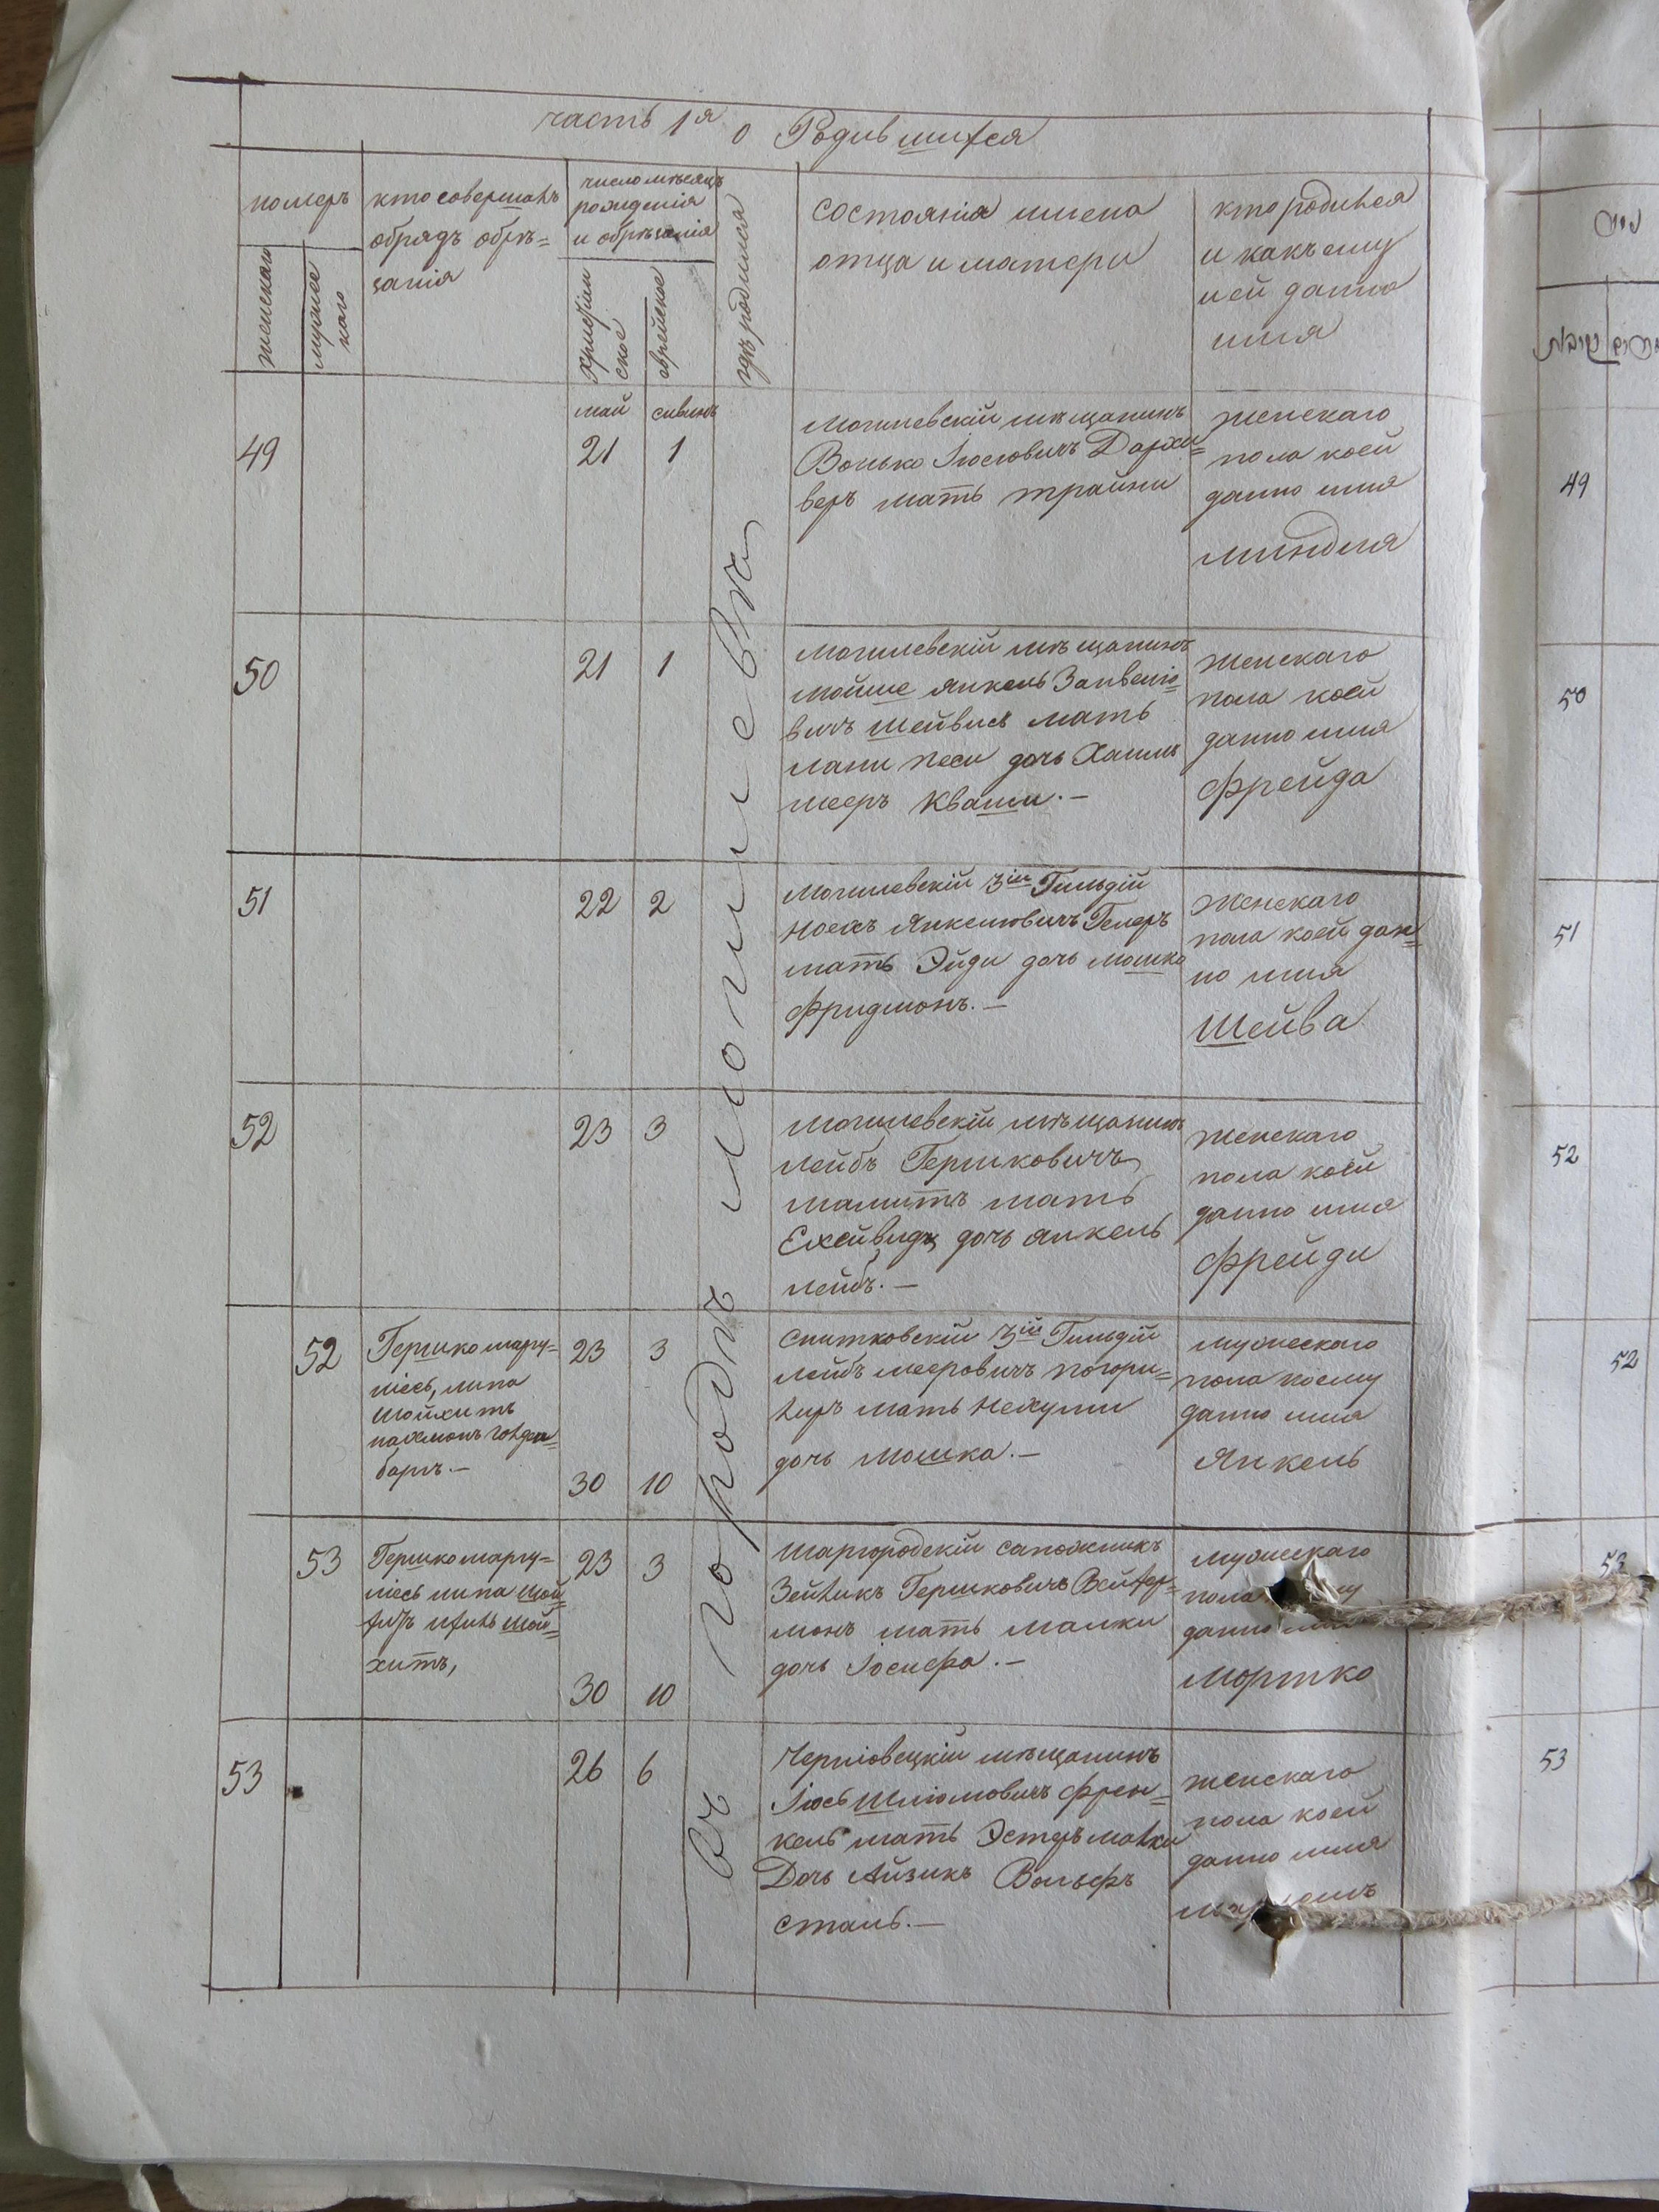 часть 1я о Родившихся
номеръ
женскаго
мужес
каго
кто совершалъ
обрядъ обрѣ=
занія
число мѣсяцъ
рожденія
и обрѣзанія
христіян
ское
еврейское
гдѣ родился
состоянія имена
отца и матери
кто родился
и какъ ему
или ей данно
имя
въ городѣ могилевѣ
49
май
21
сиванъ
1
могилевскій мѣщанинъ
Волько Іосіовичъ
мать трайни
женскаго
пола коей
данно имя
миндля
50
21
1
могилевскій мѣщанинъ
мойше янкель Занвеліо=
вичъ шейвисъ мать
лани песи дочь Хаимъ
мееръ Кваши.—
женскаго
пола коей
данно имя
фрейда
51
22
2
могилевскій 3ій Гильдій
Носихъ Янкеліовичъ Гелеръ
мать Эйди дочь мошко
фридмонъ.—
женскаго
пола коей дан=
но имя
Шейва
52
23
3
могилевскій мѣщанинъ
лейбъ Гершковичъ
мать
дочь янкель
лейбъ.—
женскаго
пола коей
данно имя
фрейди
52
Гершко маргу=
ліесъ, липа
шойхитъ
нахмонъ
23
3
30
10
снитковскій 3ій Гильдій
лейбъ мееровичъ погори=
лиръ мать Нехуми
дочь мошка.—
мужескаго
пола коему
данно имя
Янкель
53
Гершко маргу=
ліесъ липа шой=
шой=
хитъ,
23
3
30
10
шаргородскій сапожникъ
Зейликъ Гершковичъ Вейхер=
монъ мать малки
дочь Іосифа.—
мужескаго
пола
данно
мортко
53
26
6
Черніовецкій мѣщанинъ
Іось шліомовичъ френ=
кель мать Эстеръ малки
Дочь Айзикъ Вольфъ
сталь.—
женскаго
пола коей
данно имя
49
50
51
52
52
53
53